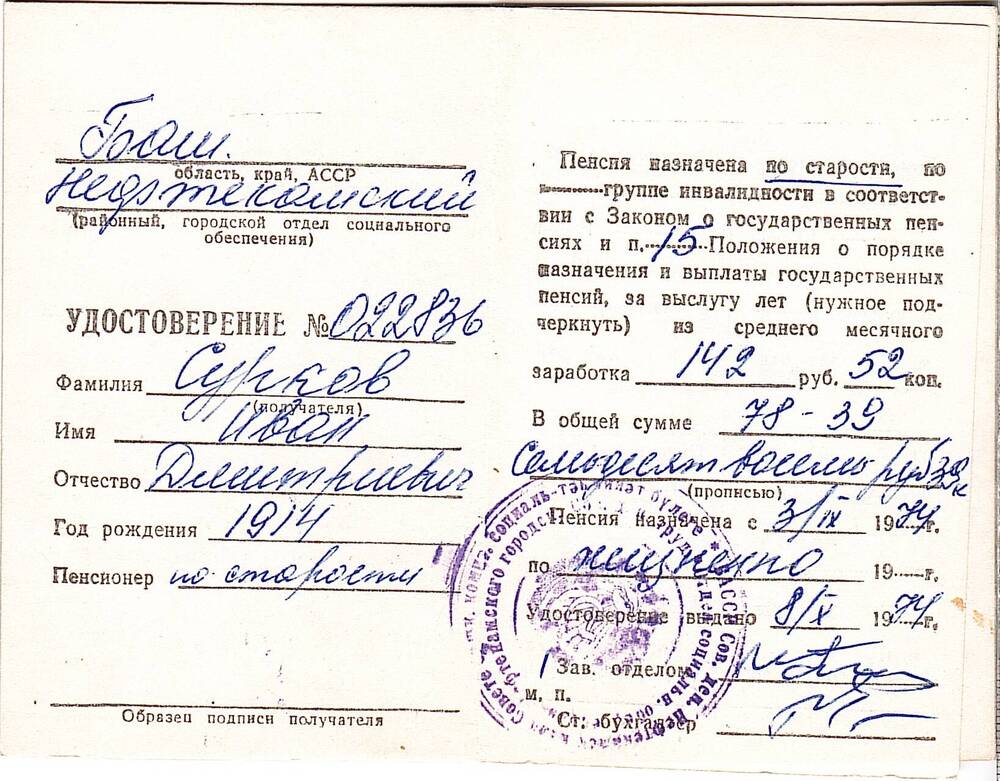 Баш.
область, край, АССР
Нефтекамский
(районный, городской отдел социального
обеспечения)
УДОСТОВЕРЕНИЕ № 022836
Фамилия Сурков
(получателя)
Имя Иван
Отчество Дмитриевич
Год рождения 1914
Пенсионер по старости
Образец подписи получателя
Пенсия назначена по старости, по
группе инвалидности в соответст-
вии с Законом о государственных пен-
сиях и п. 15 Положения о порядке
назначения и выплаты государственных
пенсий, за выслугу лет (нужное под-
черкнуть) из среднего месячного
заработка 142 руб. 52 коп.
В общей сумме 78-39
Семьдесят восемь руб 39к
(прописью)
Пенсия назначена с 3/IX 1974г.
по пожизненно 19 г.
Удостоверение выдано 8/X 1974г.
Зав. отделом
м. п.
Ст. бухгалтер